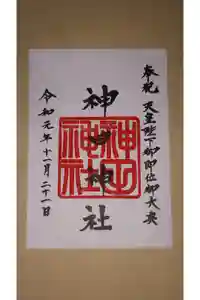 奉祝 天皇陛下御即位御大典
神山神社
令和元年十一月二十一日